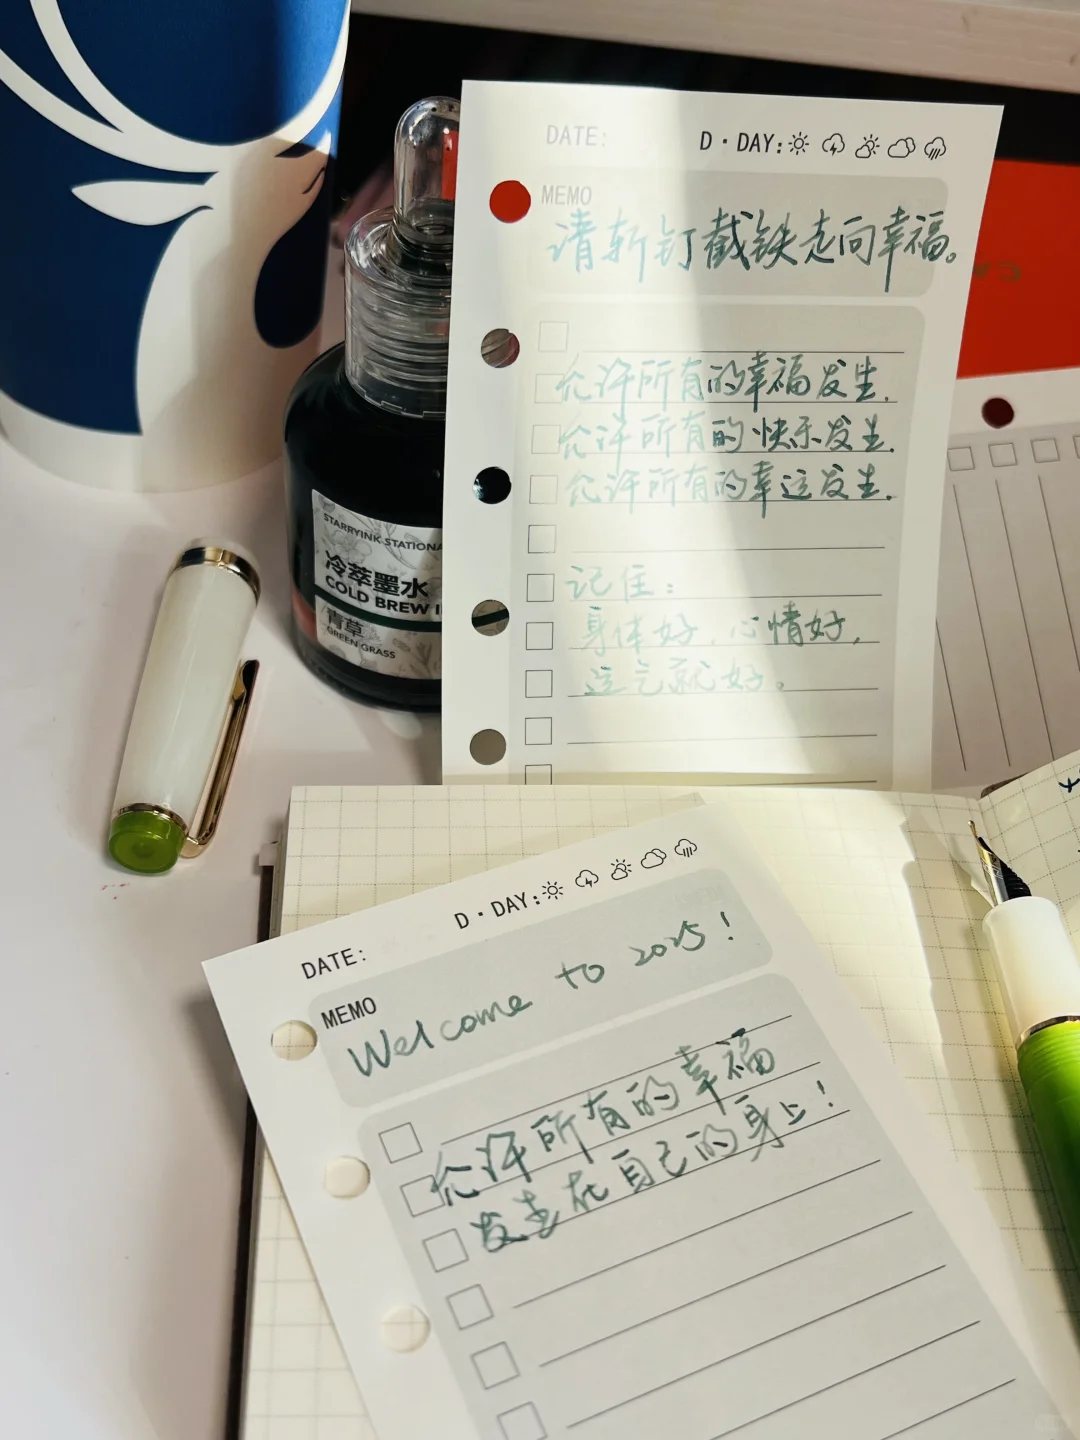 DATE:
D·DAY:
MEMO
请斩钉截铁走向幸福。
允许所有的幸福发生.
允许所有的快乐发生.
允许所有的幸运发生.
记住:
身体好,心情好,
运气就好。
STARRYINK STATIONA
冷萃墨水
COLD BREW I
青草
GREEN GRASS
D·DAY:
DATE:
MEMO
Welcome to 2025!
允许所有的幸福
发生在自己的身上!